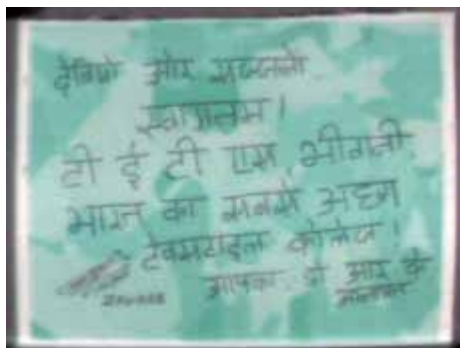 देवियो और सज्जनो
स्वागतम!
टी ई टी एस भीवानी
भारत का सबसे अहम
टेक्सटाइल कोलेज!
आपका डी आर के